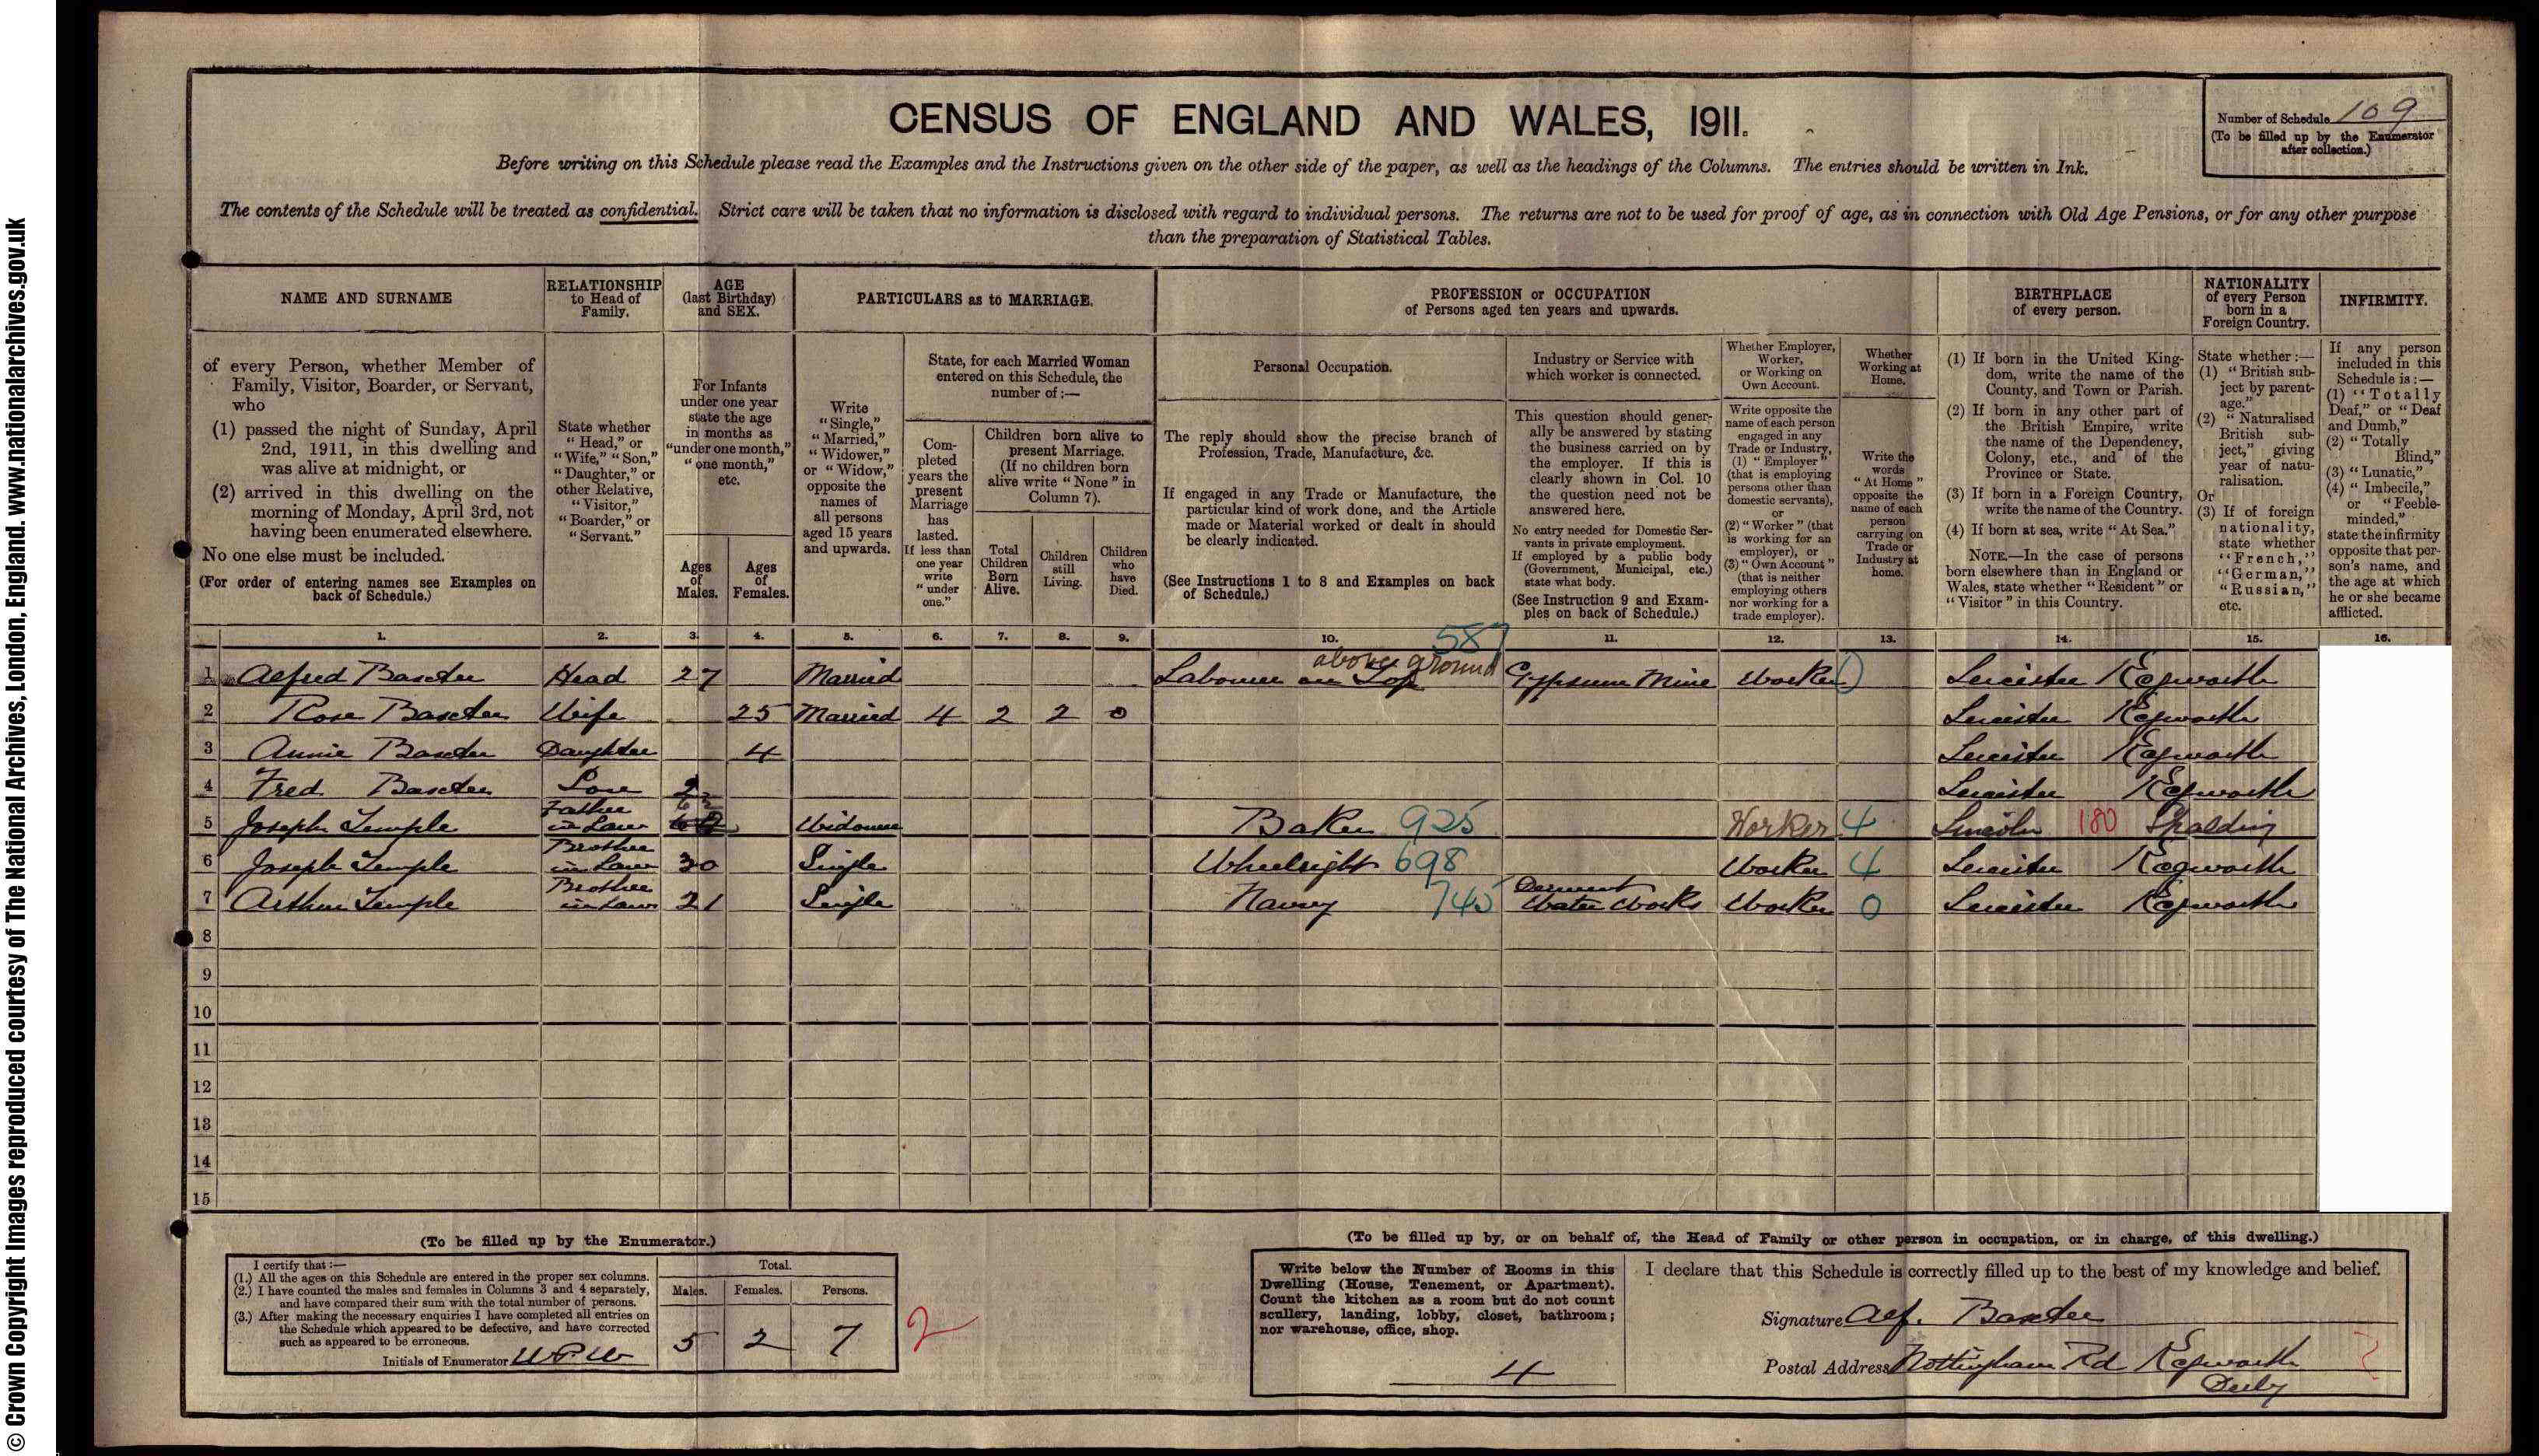 © Crown Copyright Images reproduced courtesy of The National Archives, London, England. www.nationalarchives.gov.uk
CENSUS OF ENGLAND AND WALES, 1911.
Number of Schedule 109
(To be filled up by the Enumerator after collection.)
Before writing on this Schedule please read the Examples and the Instructions given on the other side of the paper, as well as the headings of the Columns. The entries should be written in Ink.
The contents of the Schedule will be treated as confidential. Strict care will be taken that no information is disclosed with regard to individual persons. The returns are not to be used for proof of age, as in connection with Old Age Pensions, or for any other purpose
than the preparation of Statistical Tables.
NAME AND SURNAME
of every Person, whether Member of
Family, Visitor, Boarder, or Servant,
who
(1) passed the night of Sunday, April
2nd, 1911, in this dwelling and
was alive at midnight, or
(2) arrived in this dwelling on the
morning of Monday, April 3rd, not
having been enumerated elsewhere.
No one else must be included.
(For order of entering names see Examples on
back of Schedule.)
RELATIONSHIP
to Head of
Family.
State whether
"Head," or
"Wife," "Son,"
"Daughter," or
other Relative,
"Visitor,"
"Boarder," or
"Servant."
AGE
(last Birthday)
and SEX.
For Infants
under one year
state the age
in months as
"under one month,"
"one month,"
etc.
Ages
of
Males.
Ages
of
Females.
PARTICULARS as to MARRIAGE.
Write
"Single,"
"Married,"
"Widower,"
or "Widow,"
opposite the
names of
all persons
aged 15 years
and upwards.
State, for each Married Woman
entered on this Schedule, the
number of :—
Com-
pleted
years the
present
Marriage
has
lasted.
If less than
one year
write
"under
one."
Children born alive to
present Marriage.
(If no children born
alive write "None" in
Column 7).
Total
Children
Born
Alive.
Children
still
Living.
Children
who
have
Died.
PROFESSION or OCCUPATION
of Persons aged ten years and upwards.
Personal Occupation.
The reply should show the precise branch of
Profession, Trade, Manufacture, &c.
If engaged in any Trade or Manufacture, the
particular kind of work done, and the Article
made or Material worked or dealt in should
be clearly indicated.
(See Instructions 1 to 8 and Examples on back
of Schedule.)
Industry or Service with
which worker is connected.
This question should gener-
ally be answered by stating
the business carried on by
the employer. If this is
clearly shown in Col. 10
the question need not be
answered here.
No entry needed for Domestic Ser-
vants in private employment.
If employed by a public body
(Government, Municipal, etc.)
state what body.
(See Instruction 9 and Exam-
ples on back of Schedule.)
Whether Employer,
Worker,
or Working on
Own Account.
Write opposite the
name of each person
engaged in any
Trade or Industry,
(1) "Employer"
(that is employing
persons other than
domestic servants),
or
(2) "Worker" (that
is working for an
employer), or
(3) "Own Account"
(that is neither
employing others
nor working for a
trade employer).
Whether
Working at
Home.
Write the
words
"At Home"
opposite the
name of each
person
carrying on
Trade or
Industry at
home.
BIRTHPLACE
of every person.
(1) If born in the United King-
dom, write the name of the
County, and Town or Parish.
(2) If born in any other part of
the British Empire, write
the name of the Dependency,
Colony, etc., and of the
Province or State.
(3) If born in a Foreign Country,
write the name of the Country.
(4) If born at sea, write "At Sea."
NOTE.—In the case of persons
born elsewhere than in England or
Wales, state whether "Resident" or
"Visitor" in this Country.
NATIONALITY
of every Person
born in a
Foreign Country.
State whether :—
(1) "British sub-
ject by parent-
age."
(2) "Naturalised
British sub-
ject," giving
year of natu-
ralisation.
Or
(3) If of foreign
nationality,
state whether
"French,"
"German,"
"Russian,"
etc.
INFIRMITY.
If any person
included in this
Schedule is :—
(1) "Totally
Deaf," or "Deaf
and Dumb,"
(2) "Totally
Blind,"
(3) "Lunatic,"
(4) "Imbecile,"
or "Feeble-
minded,"
state the infirmity
opposite that per-
son's name, and
the age at which
he or she became
afflicted.
1. 2. 3. 4. 5. 6. 7. 8. 9. 10. 11. 12. 13. 14. 15. 16.
587
above ground
1 Alfred Baxter Head 27 Married Labourer on Top Gypsum Mine Worker Leicester Kegworth
2 Rose Baxter Wife 25 Married 4 2 2 0 Leicester Kegworth
3 Annie Baxter Daughter 4 Leicester Kegworth
4 Fred Baxter Son 2 Leicester Kegworth
5 Joseph Temple Father in Law 62 Widower Baker 925 Worker 4 Lincoln 180 Spalding
6 Joseph Temple Brother in Law 30 Single Wheelright 698 Worker 4 Leicester Kegworth
7 Arthur Temple Brother in Law 21 Single Navvy 745 Derwent Water Works Worker 0 Leicester Kegworth
8
9
10
11
12
13
14
15
(To be filled up by the Enumerator.)
I certify that :—
(1.) All the ages on this Schedule are entered in the proper sex columns.
(2.) I have counted the males and females in Columns 3 and 4 separately,
and have compared their sum with the total number of persons.
(3.) After making the necessary enquiries I have completed all entries on
the Schedule which appeared to be defective, and have corrected
such as appeared to be erroneous.
Initials of Enumerator WPW
Total.
Males. Females. Persons.
5 2 7
2
(To be filled up by, or on behalf of, the Head of Family or other person in occupation, or in charge, of this dwelling.)
Write below the Number of Rooms in this
Dwelling (House, Tenement, or Apartment).
Count the kitchen as a room but do not count
scullery, landing, lobby, closet, bathroom;
nor warehouse, office, shop.
4
I declare that this Schedule is correctly filled up to the best of my knowledge and belief.
Signature Alf. Baxter
Postal Address Nottingham Rd Kegworth
Derby